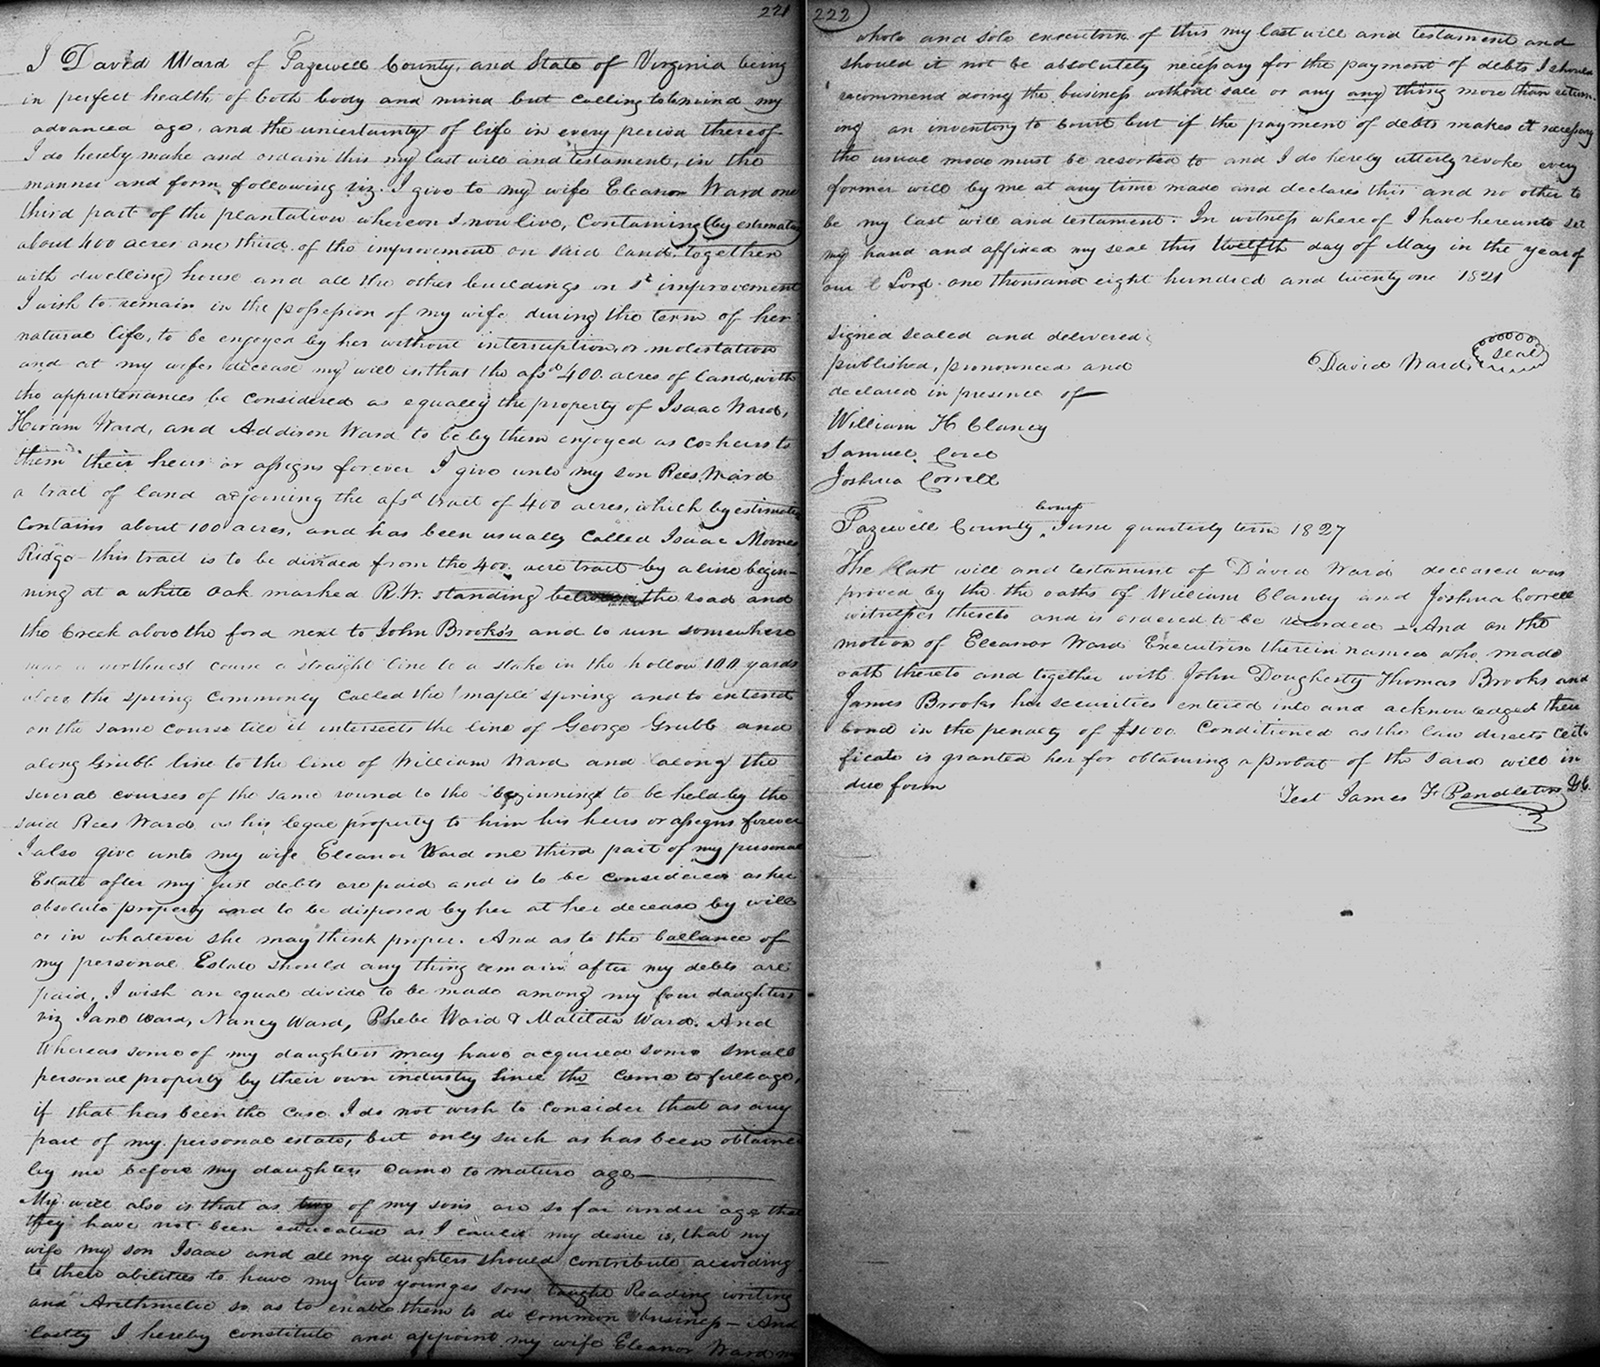 221
I David Ward of Tazewell County, and State of Virginia being
in perfect health of both body and mind but calling to mind my
advanced age, and the uncertainty of life in every period thereof
I do hereby make and ordain this my last will and testament, in the
manner and form following viz. I give to my wife Eleanor Ward one
third part of the plantation whereon I now live, Containing (by estimate)
about 400 acres one third of the improvement on said land, together
with dwelling house and all the other buildings on sd improvement
I wish to remain in the possession of my wife during the term of her
natural life, to be enjoyed by her without interruption, or molestation
and at my wifes decease my will is that the afsd 400 acres of land, with
the appurtenances be considered as equally the property of Isaac Ward,
Hiram Ward, and Addison Ward to be by them enjoyed as co=heirs to
them their heirs or assigns forever I give unto my son Rees Ward
a tract of land adjoining the afsd tract of 400 acres, which by estimate
Contains about 100 acres, and has been usually Called Isaac Moores
Ridge - this tract is to be divided from the 400 acre tract by a line begin-
ning at a white oak marked R.W. standing between the road and
the Creek above the ford next to John Brooks's and to run somewhere
near a northwest course a straight line to a stake in the hollow 100 yards
above the spring Commonly Called the maple spring and to extend
on the same course till it intersects the line of George Grubb and
along Grubb line to the line of William Ward and along the
several courses of the same round to the beginning to be held by the
said Rees Ward as his legal property to him his heirs or assigns forever
I also give unto my wife Eleanor Ward one third part of my personal
Estate after my just debts are paid and is to be considered as her
absolute property and to be disposed by her at her decease by will
or in whatever she may think proper. And as to the ballance of
my personal Estate should any thing remain after my debts are
paid, I wish an equal divide to be made among my four daughters
viz Jane Ward, Nancy Ward, Phebe Ward & Matilda Ward. And
Whereas some of my daughters may have acquired some small
personal property by their own industry Since the Came to full age,
if that has been the case I do not wish to consider that as any
part of my personal estate, but only such as has been obtained
by me before my daughters Came to mature age—
My will also is that as two of my sons are so far under age that
they have not been educated as I could my desire is, that my
wife my son Isaac and all my daughters should contribute according
to their abilities to have my two younges sons taught Reading writing
and Arithmetic so as to enable them to do common business — And
lastly I hereby constitute and appoint my wife Eleanor Ward my
222
whole and sole executrix of this my last will and testament and
should it not be absolutely necessary for the payment of debts I should
recommend doing the business without sale or any any thing more than return-
ing an inventory to Court but if the payment of debts makes it necessary
the usual mode must be resorted to and I do hereby utterly revoke every
former will by me at any time made and declare this and no other to
be my last will and testament. In witness where of I have hereunto set
my hand and affixed my seal this twelfth day of May in the year of
our Lord one thousand eight hundred and twenty one 1821
signed sealed and delivered
published, pronounced and
David Ward seal
declared in presence of
William H Clancy
Samuel Corel
Joshua Correll
Tazewell County Court June quarterly term 1827
The last will and testament of David Ward deceased was
proved by the the oaths of William Clancy and Joshua Correll
witnesses thereto and is ordered to be recorded - And on the
motion of Eleanor Ward Executrix therein named who made
oath thereto and together with John Dougherty Thomas Brooks and
James Brooks her securities entered into and acknowledged their
bond in the penalty of $1000 Conditioned as the law directs Certi-
ficate is granted her for obtaining a probat of the said will in
due form
Test James F Pendleton D.C.